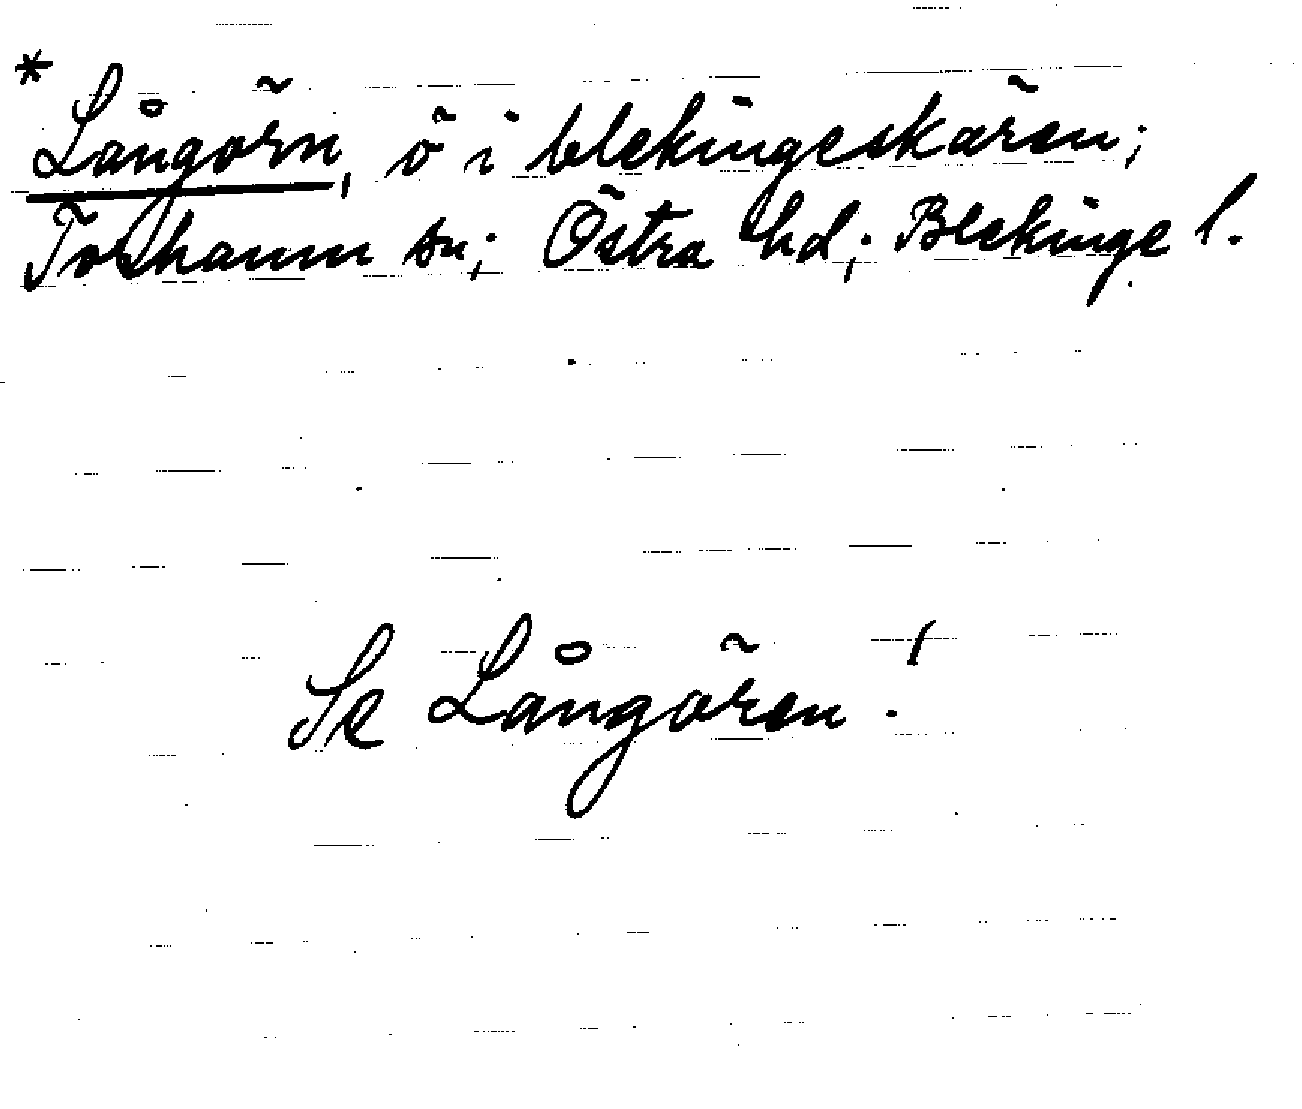 * Långörn, ö i blekingeskären;
Torhamn sn; Östra hd; Blekinge l.
Se Långören!